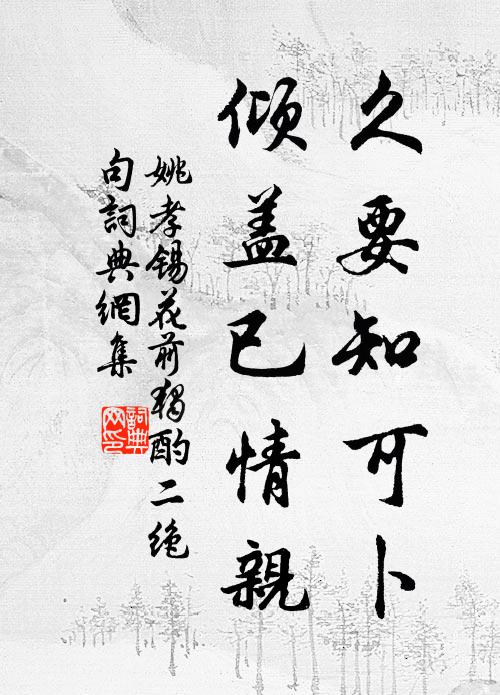 久要知可卜
倾盖已情親
姚孝锡花前獨酌二绝
句詞典網集
詞典
网印